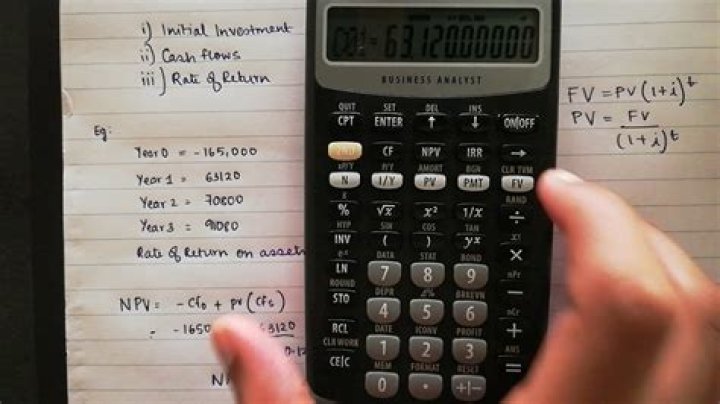 i) Initial Investment
ii) Cash flows
iii) Rate of Return
Eg:
Year 0 = -165,000
Year 1 = 63120
Year 2 = 70800
Year 3 = 91080
Rate of Return on assets
NPV = -CF0 + PV (CFs)
= -1650 63120
0.12
C01= 63,120.00000
BUSINESS ANALYST
QUIT SET DEL INS
CPT ENTER ↑ ↓ ON|OFF
2ND CF NPV IRR →
xP/Y P/Y AMORT BGN CLR TVM
N I/Y PV PMT FV
K RAND
% √x x² 1/x ÷
HYP SIN COS TAN x!
INV ( ) yx ×
ex DATA STAT BOND nPr
LN 7 8 9 −
ROUND DEPR Δ% BRKEVN nCr
STO 4 5 6 +
DATE ICONV PROFIT ANS
RCL 1 2 3 =
CLR WORK MEM FORMAT RESET
CE|C 0 . +|−
FV = PV (1+i)t
PV = FV
(1+i)t